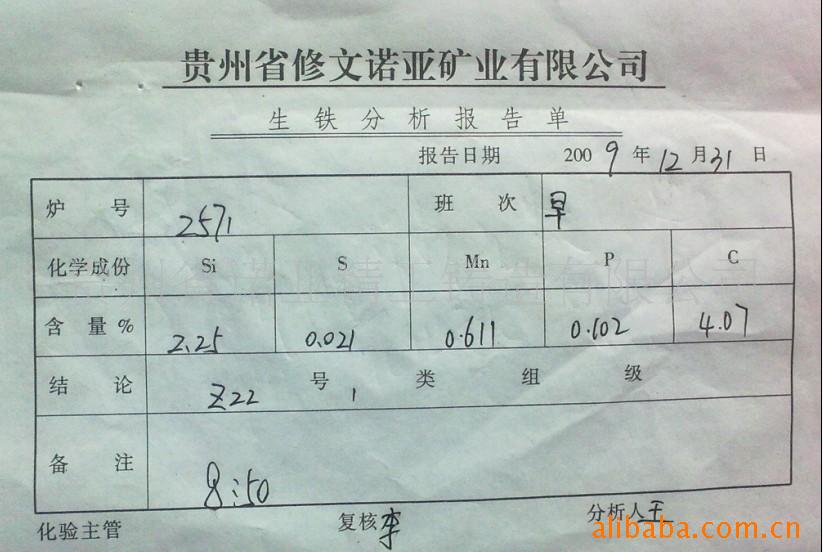 贵州省修文诺亚矿业有限公司
生铁分析报告单
报告日期 2009年12月31日
炉号 2571 班次 早
化学成份 Si S Mn P C
含量% 2.25 0.021 0.611 0.102 4.07
结论 Z22号 1类 组 级
备注 8:50
化验主管 复核李 分析人王
alibaba.com.cn